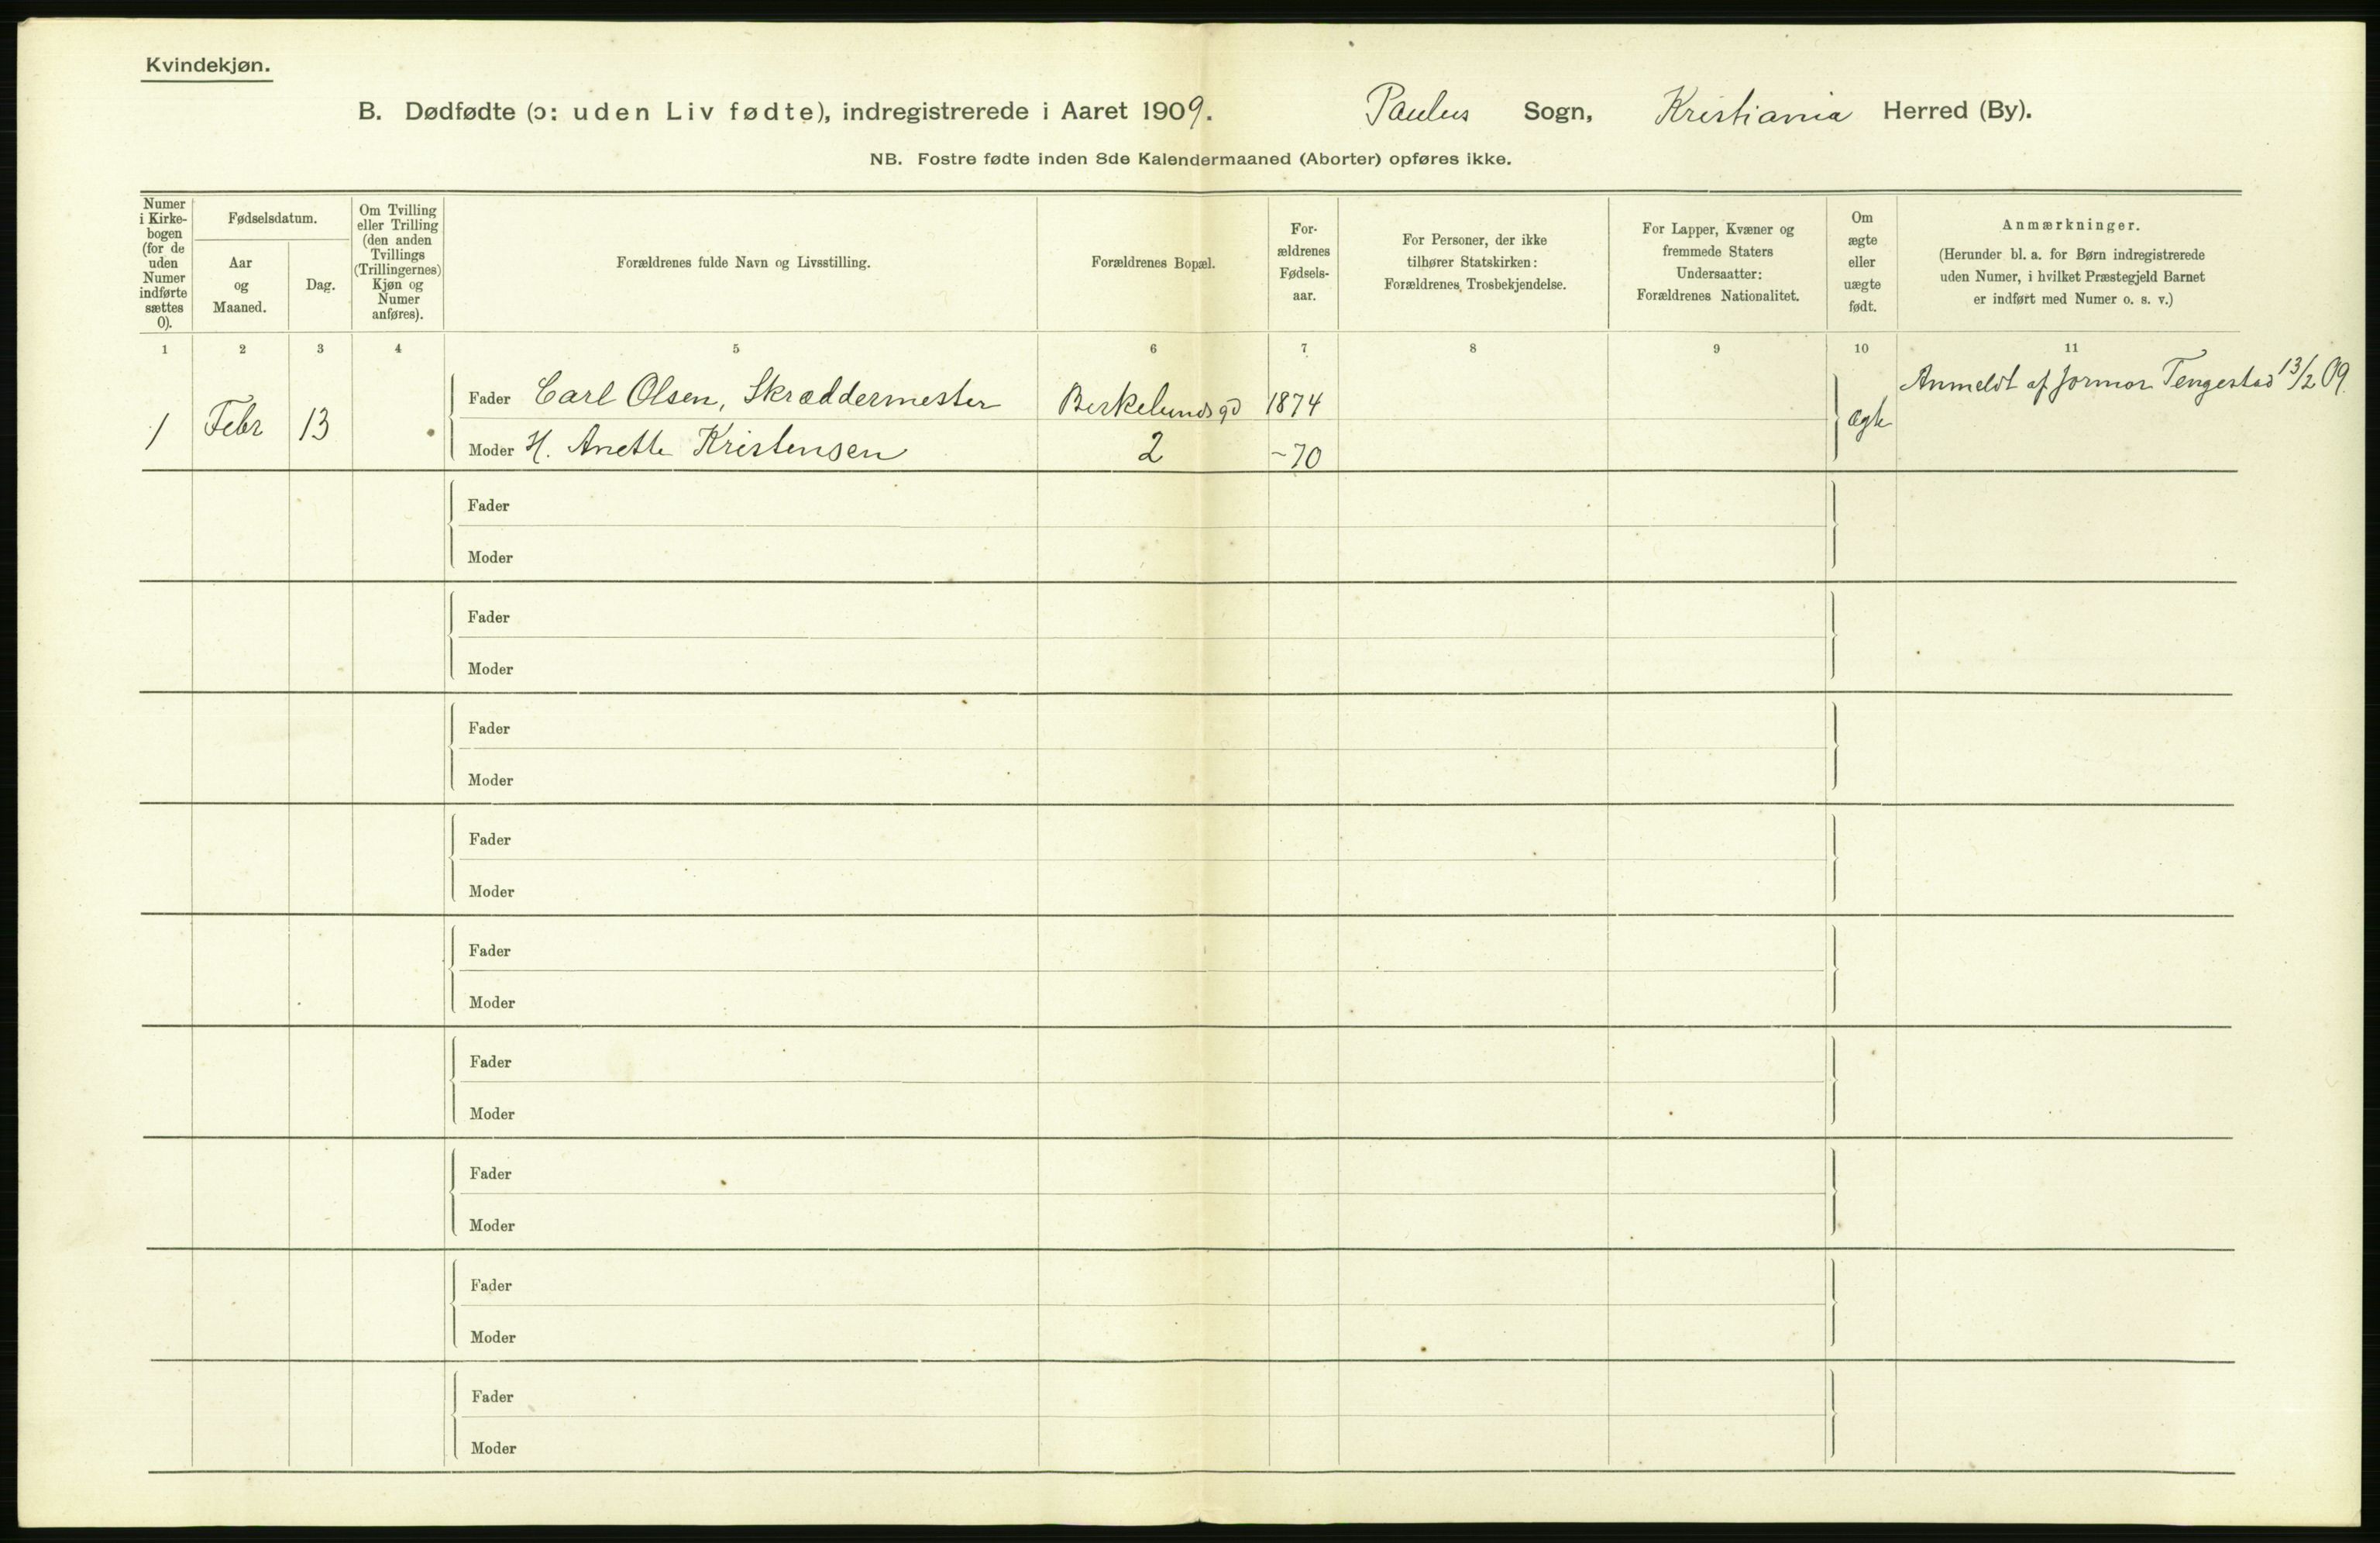 Kvindekjøn.
B. Dødfødte (ɔ: uden Liv fødte), indregistrerede i Aaret 1909. Paulus Sogn, Kristiania Herred (By).
NB. Fostre fødte inden 8de Kalendermaaned (Aborter) opføres ikke.
Numer
i Kirke-
bogen
(for de
uden
Numer
indførte
sættes
0).
Fødselsdatum.
Aar
og
Maaned.
Dag.
Om Tvilling
eller Trilling
(den anden
Tvillings
(Trillingernes)
Kjøn og
Numer
anføres).
Forældrenes fulde Navn og Livsstilling.
Forældrenes Bopæl.
For-
ældrenes
Fødsels-
aar.
For Personer, der ikke
tilhører Statskirken:
Forældrenes Trosbekjendelse.
For Lapper, Kvæner og
fremmede Staters
Undersaatter:
Forældrenes Nationalitet.
Om
ægte
eller
uægte
født.
Anmærkninger.
(Herunder bl. a. for Børn indregistrerede
uden Numer, i hvilket Præstegjeld Barnet
er indført med Numer o. s. v.)
1 2 3 4 5 6 7 8 9 10 11
1 Febr 13
Fader Carl Olsen, Skræddermester Birkelundsgd 1874
Moder H. Anette Kristensen 2 -70
Ægte
Anmeldt af Jormor Tengestad 13/2 09.
Fader
Moder
Fader
Moder
Fader
Moder
Fader
Moder
Fader
Moder
Fader
Moder
Fader
Moder
Fader
Moder
Fader
Moder